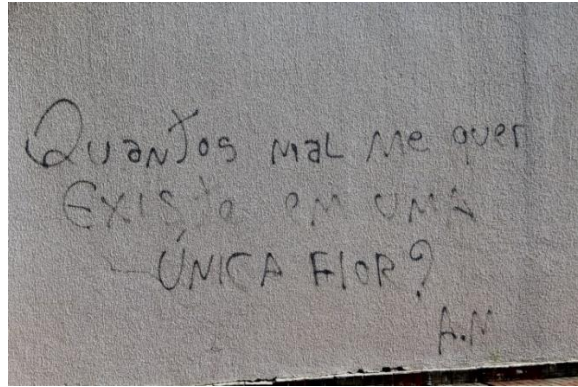 Quantos mal me quer
Existe em uma
ÚNICA FlOR?
A.M